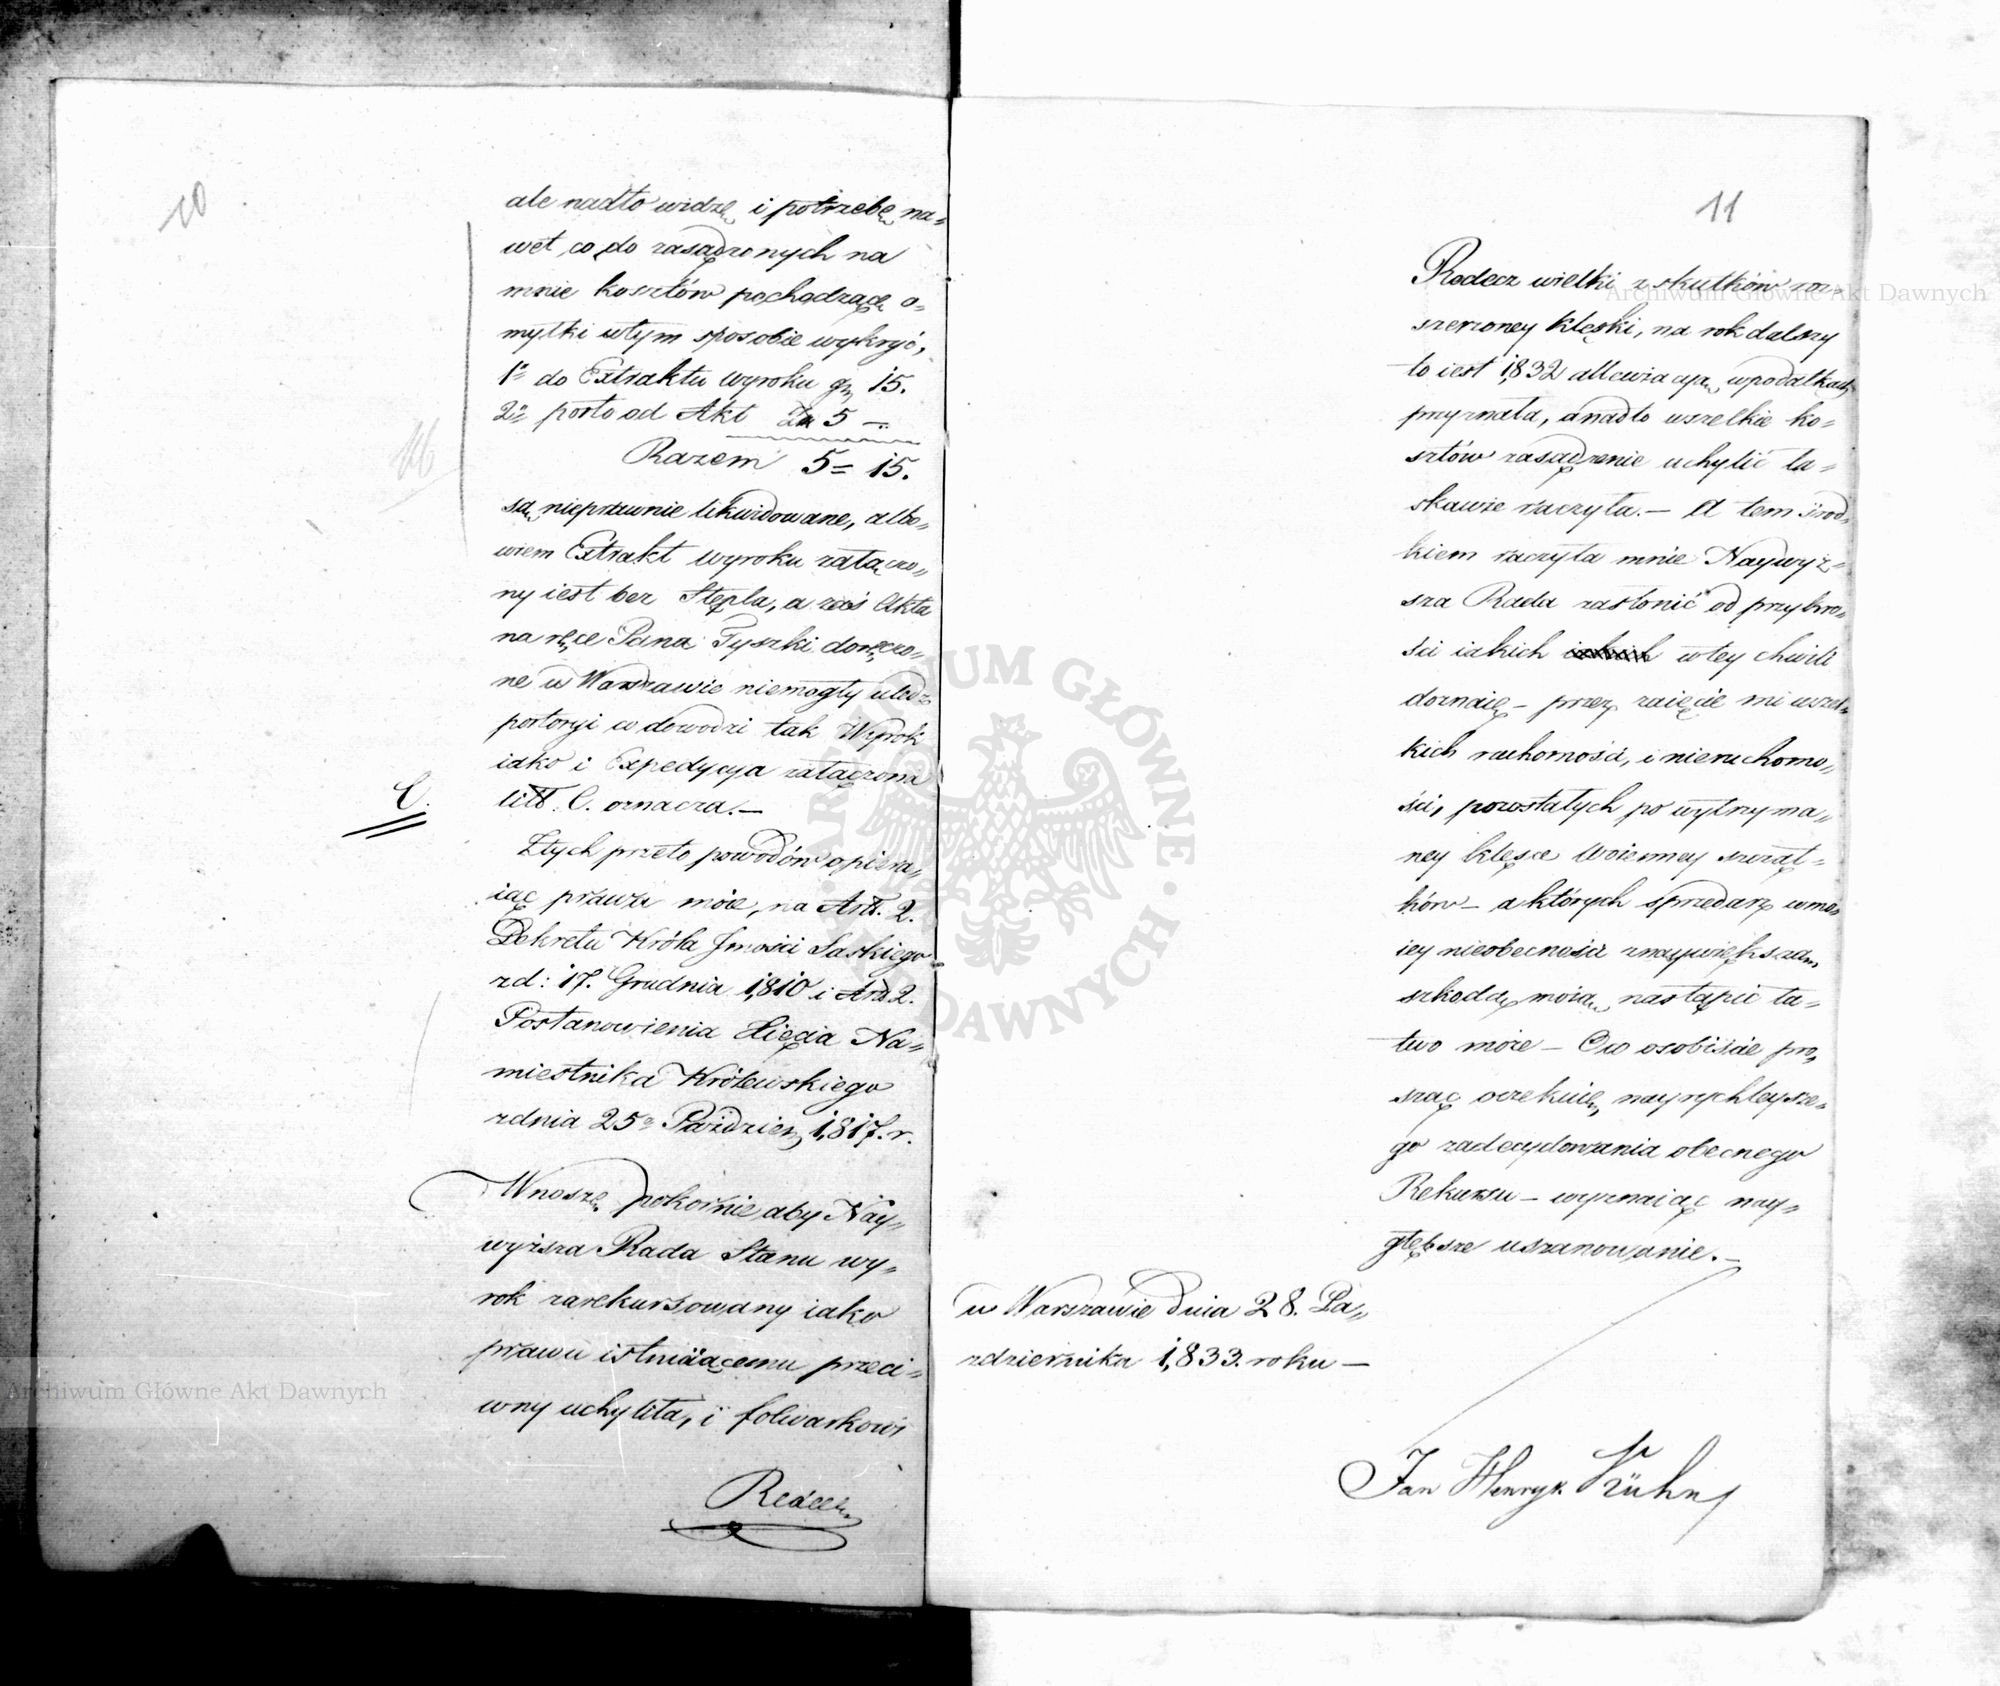 10
ale nadto widzę i potrzebę na„
wet co do zasądzonych na
mnie kosztów pochodzącą o„
myłki wtym sposobie wykryć,
1o do Extraktu wyroku gr 15.
2o porto od Akt Zł 5 —
Razem 5 = 15.
są nieprawnie likwidowane, albo„
wiem Extrakt wyroku załączo„
ny iest bez Stępla, a zaś Akta
na ręce Pana Tyszki doręczo„
ne w Warszawie niemogły uledz
portoryi co dowodzi tak Wyrok
iako i Expedycya załączona
C.
litt. C. oznacza.—
Ztych przeto powodów opiera„
iąc prawa moie, na Art. 2.
Dekretu Króla Jmości Saskiego
zd: 17. Grudnia 1,810 i Art. 2.
Postanowienia Xięcia Na„
miestnika Królewskiego
zdnia 25o Paździer 1,817. r.
Wnoszę pokornie aby Nay„
wyższa Rada Stanu wy„
rok zarekursowany iako
prawu istnieiącemu przeci„
wny uchyliła, i folwarkowi
Redecz
11
Redecz wielki z skutków roz„
szerzoney klęski, na rok dalszy
to iest 1,832 allewiacyą wpodatkach
przyznała, a nadto wszelkie ko„
sztów zasądzenie uchylić ła„
skawie raczyła.— A tem środ„
kiem raczyła mnie Naywyż„
sza Rada zasłonić od przykro„
ści iakich wtey chwili
doznaię — przez zaięcie mi wszel„
kich ruchomości, i nieruchomo„
ści, pozostałych po wytrzyma„
ney klęsce Woienney szcząt„
ków — a których sprzedaż wmo„
iey nieobecności znaywiększą
szkodą moią nastąpić ła„
two może — Oco osobiście pro„
sząc oczekuię nayrychleysze„
go zadecydowania obecnego
Rekursu — wyznaiąc nay„
głębsze uszanowanie.—
w Warszawie dnia 28. Pa„
zdziernika 1,833. roku —
Jan Henryk Kühn
Archiwum Główne Akt Dawnych
Archiwum Główne Akt Dawnych
ARCHIWUM GŁÓWNE AKT DAWNYCH